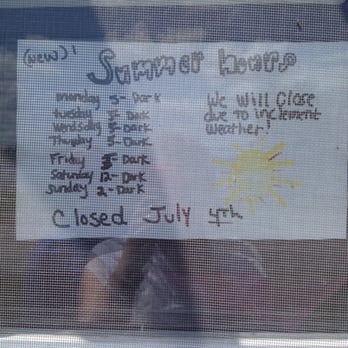 (new)!
Summer hours
monday 5-Dark
tuesday 5-Dark
Wendsday 5-Dark
Thursday 5-Dark
Friday 3-Dark
Saturday 12-Dark
Sunday 2-Dark
We Will Close
due to inclement
weather!
Closed July 4th